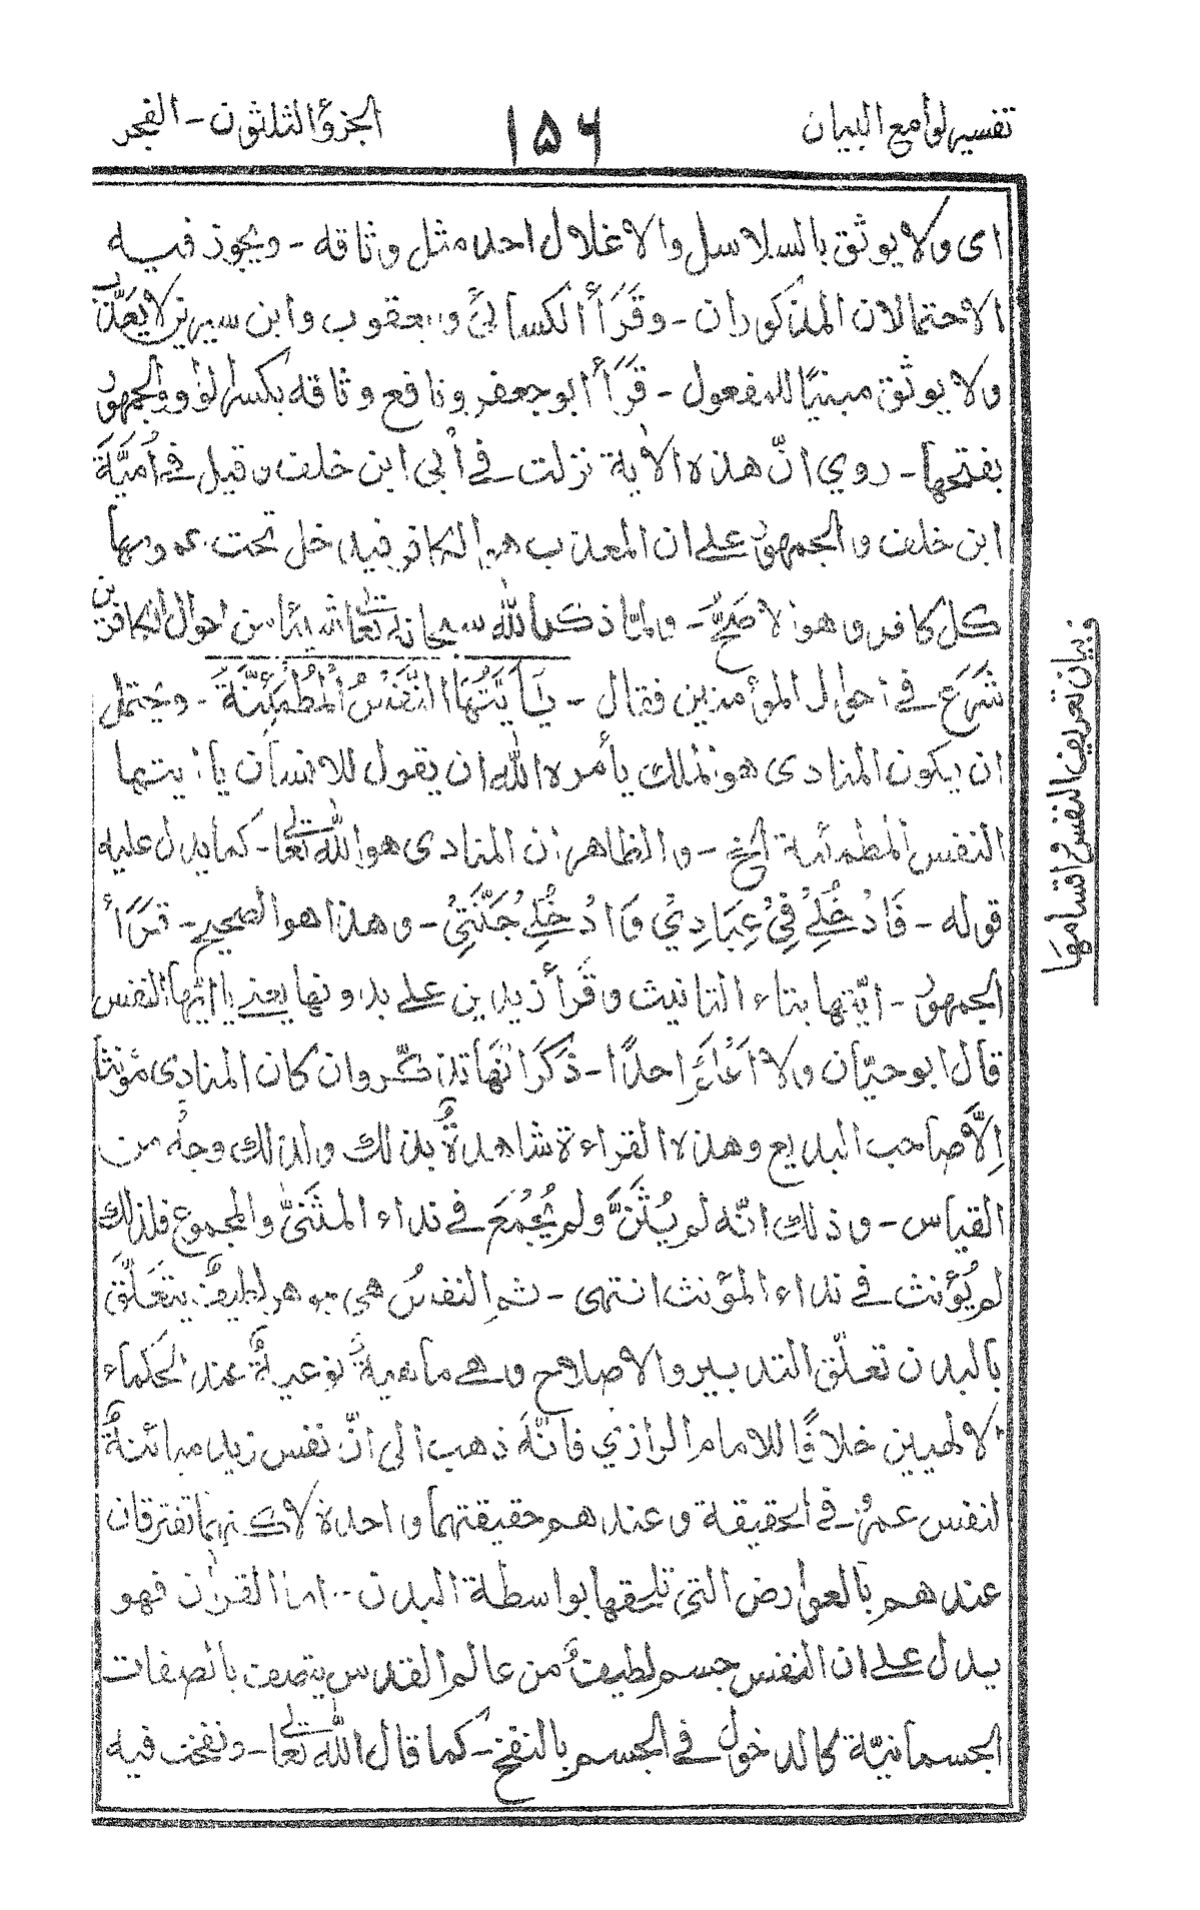 تفسير لوامع البيان
١٥٦
الجزؤ الثلثون - الفجر
اى ولا يوثق بالسلاسل والاغلال احد مثل وثاقه - ويجوز فيه
الاحتمالان المذكوران - وقَرَأَ الكسائيُّ ويعقوب وابن سيرين لا يعذَّب
ولا يوثَق مبنيًا للمفعول - قَرَأَ ابو جعفر ونافع وثاقه بكسر الواو والجمهورُ
بفتحها - روي انّ هذه الأية نزلت في أُبي ابن خلف وقيل في اُمَيَّةَ
ابن خلف والجمهور على ان المعذب هو الكافر فيدخل تحت عمومها
كل كافر وهو الاصَحُّ - ولمّا ذكر الله سبحانه تعالى شيئا من احوال الكافرين
شَرَعَ في احوال المؤمنين فقال - يَا اَيَّتُهَا النَّفْسُ الْمُطْمَئِنَّةُ - ويحتمل
ان يكون المنادى هو الملك يأمره الله ان يقول للانسان يا ايتها
النفس المطمئنة الخ - والظاهر ان المنادى هو الله تعالى - كما يدل عليه
قوله - فَادْخُلِيْ فِيْ عِبَادِيْ وَادْخُلِيْ جَنَّتِيْ - وهذا هو الصحيح - قَرَأَ
الجمهورُ - ايّتها بتاء التانيث وقَرأ زيد بن على بدونها يعنى يا ايّها النفس
قال ابو حيّان ولا اَعْلَمُ احدًا - ذَكَرَ انّها تذكّر وان كان المنادى مؤنثا
اِلّا صاحب البديع وهذه القراءة شاهدةٌ بذلك ولذلك وجهٌ من
القياس - وذلك انّه لم يُثَنَّ ولم يُجْمَعَ في نداء المثَنّىٰ والمجموع فلذلك
لم يُؤنث في نداء المؤنث انتهى - ثم النفسُ هي جوهر لطيفٌ يتعَلّق
بالبدن تعلّق التدبير والاصلاح وهي ماهيةٌ نوعيةٌ عند الحكماء
الالهيين خلافًا للامام الرازي فانّه ذهب الى انّ نفس زيد مبائنةٌ
لنفس عمرو في الحقيقة وعندهم حقيقتهما واحدة لاكنهما تفترقان
عندهم بالعوارض التى تلحقها بواسطة البدن - اما القرآن فهو
يدل على ان النفس جسم لطيفٌ من عالم القدس يتصف بالصفات
الجسمانيّة كالدخول في الجسم بالنفخ - كما قال الله تعالى - ونفخت فيه
وبيان تعريف النفس واقسامها